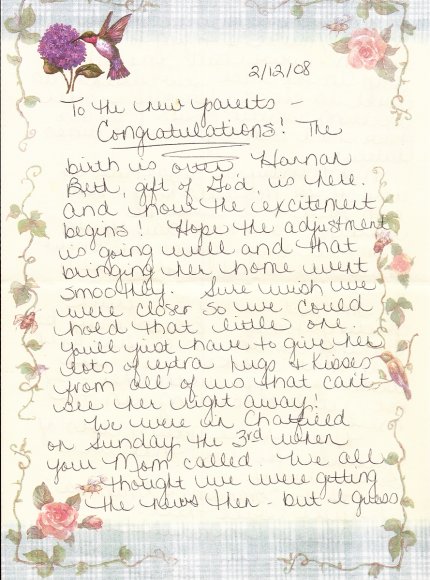 2/12/08
To the new parents -
Congratulations! The
birth is over, Hannah
Beth, gift of God, is here.
and now the excitement
begins! Hope the adjustment
is going well and that
bringing her home went
smoothly. Sure wish we
were closer so we could
hold that little one.
You'll just have to give her
lots of extra hugs & kisses
from all of us that can't
see her right away!
We were in Chatfield
on Sunday the 3rd when
your Mom called. We all
thought we were getting
the news then - but I guess